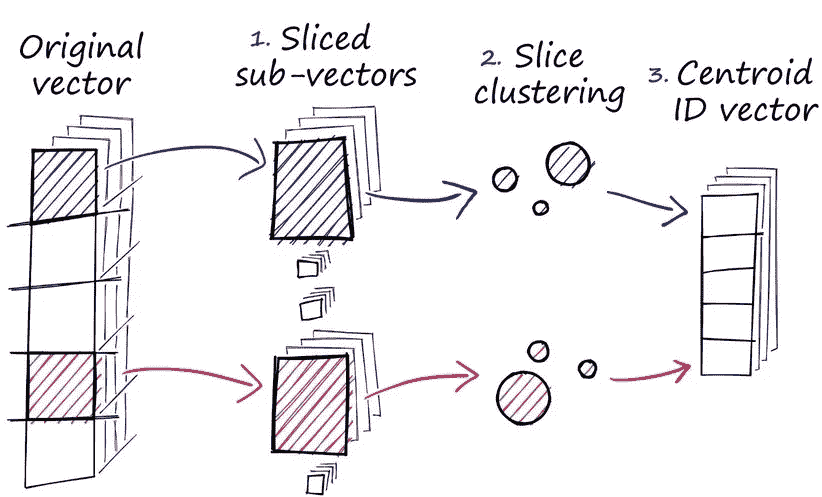 Original
vector
1. Sliced
sub-vectors
2. Slice
clustering
3. Centroid
ID vector